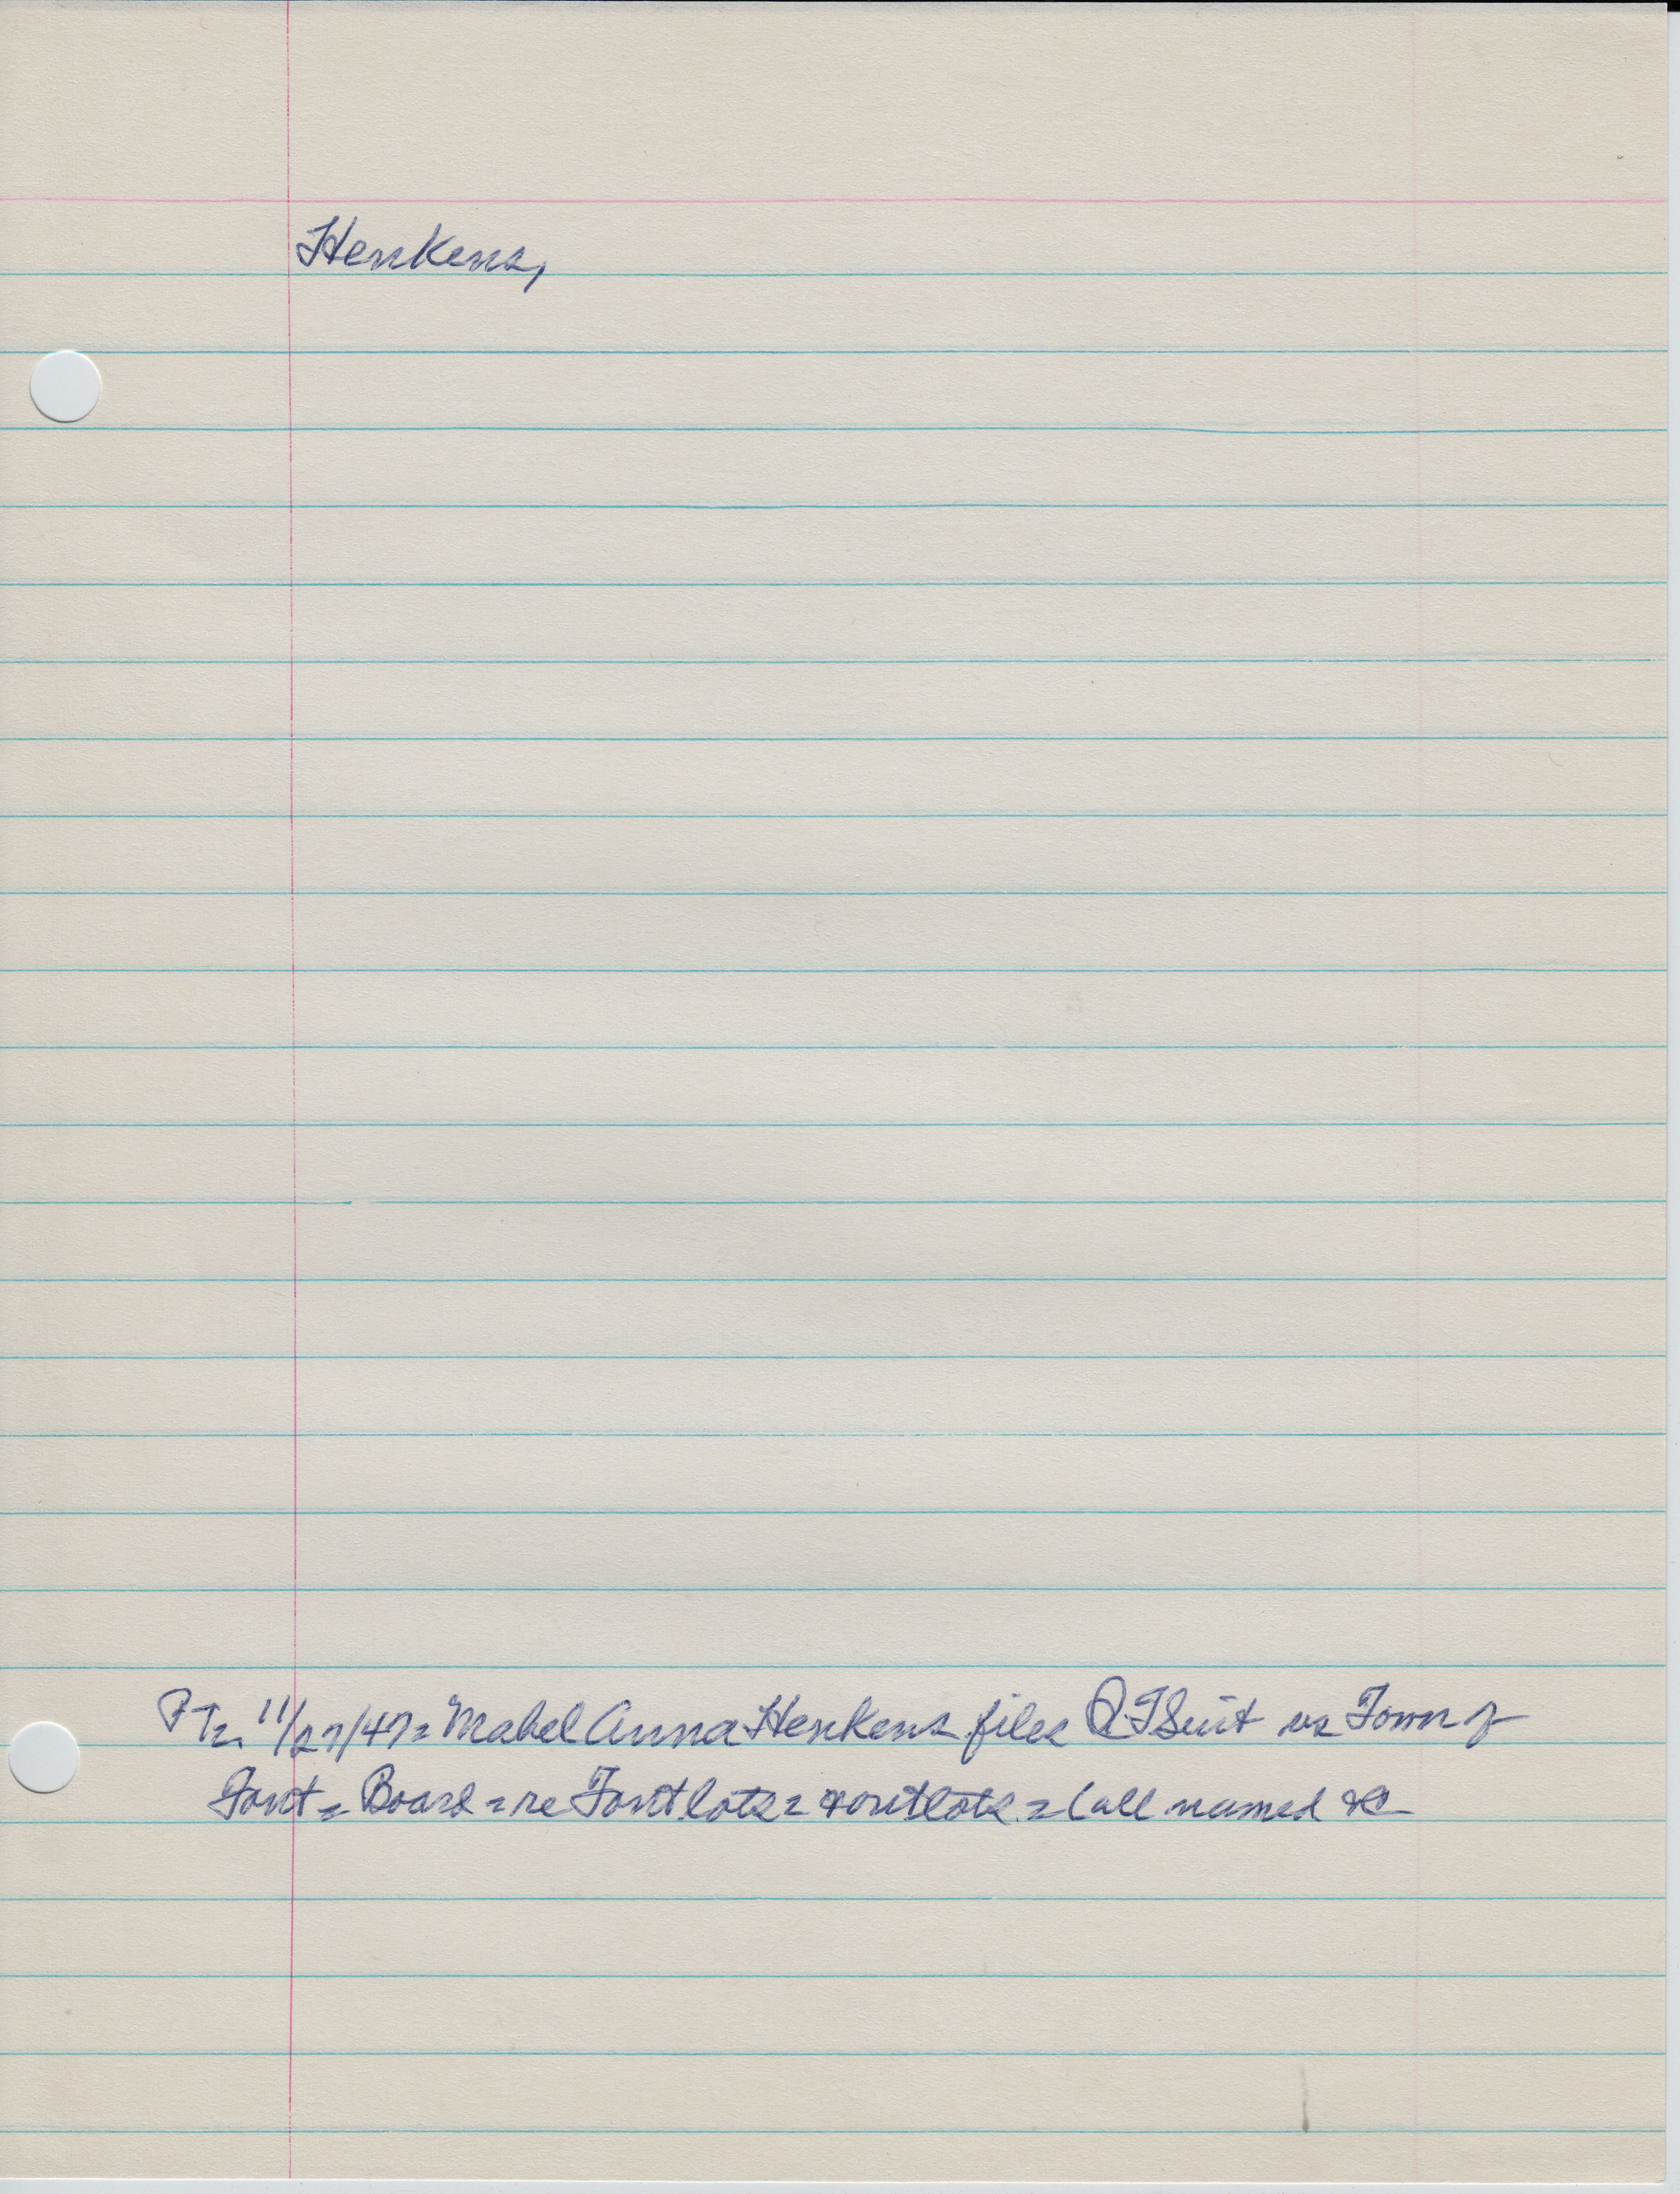 Henkens,
PTr. 11/27/47 = Mabel Anna Henkens files QTSuit vs Town of
Font = Board = re Font lots = outlots = (all named